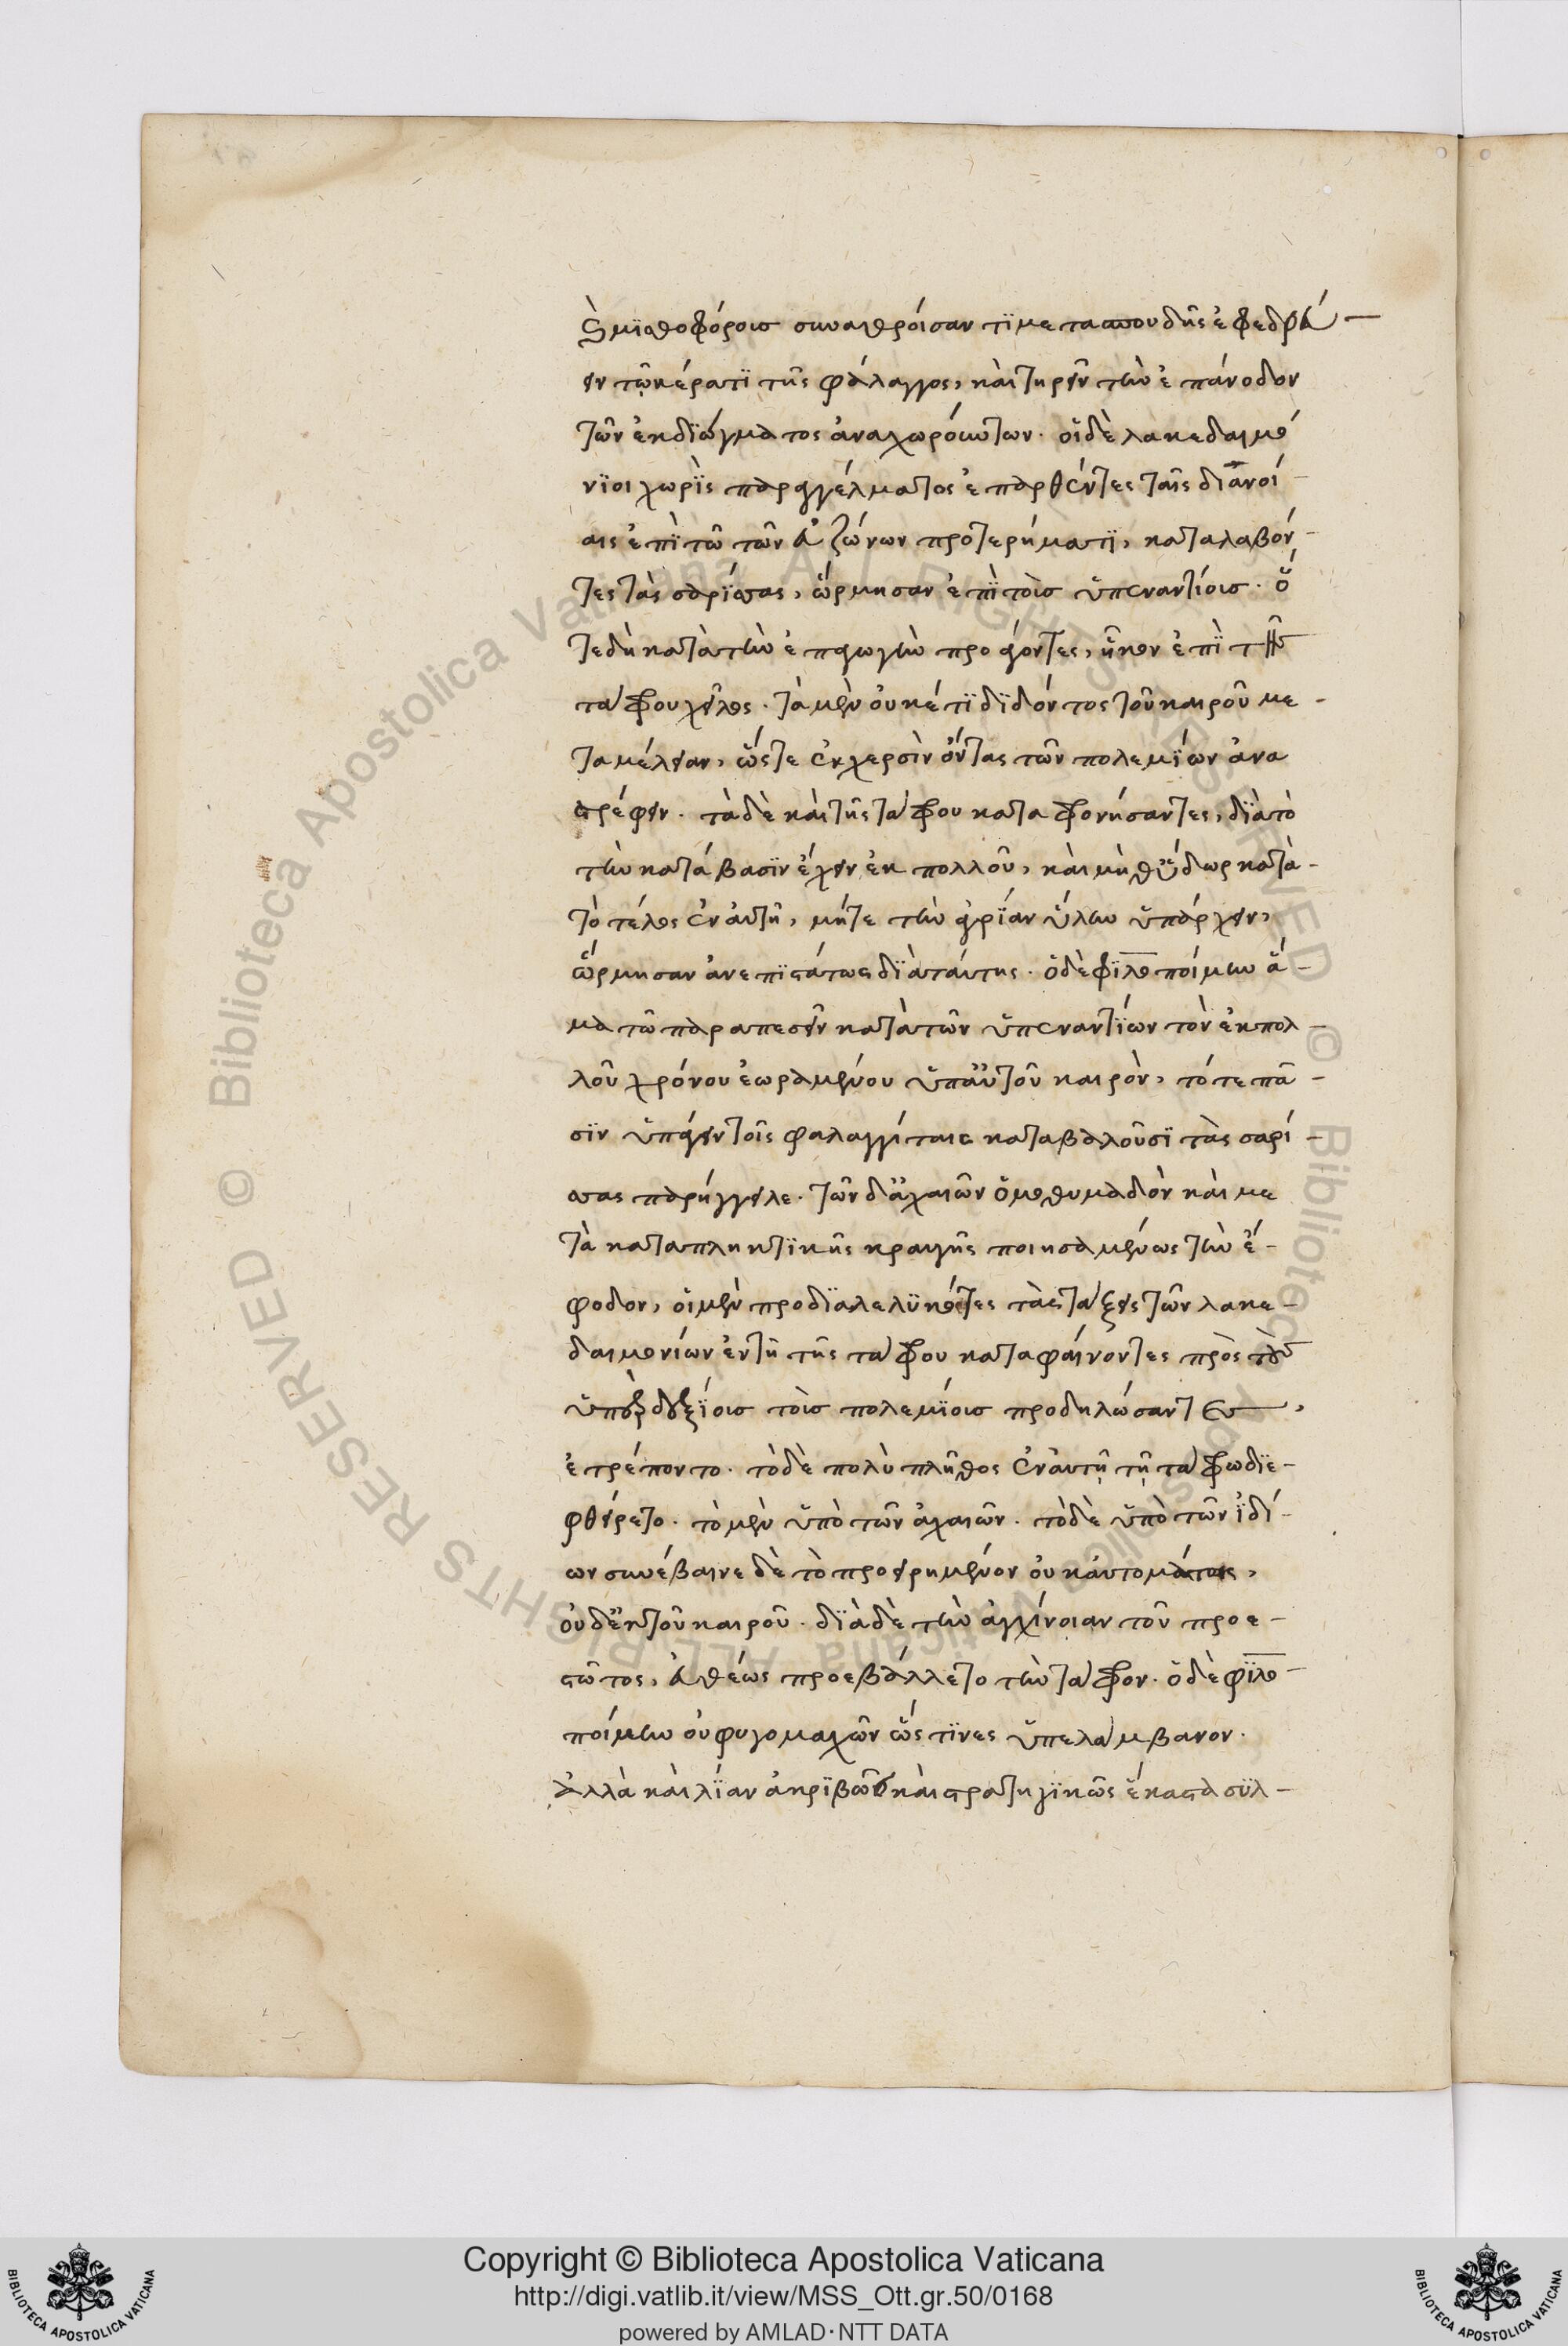 καὶ μισθοφόροις συναθροίσαντι μετα σπουδῆς ἐφεδρεύ
ειν τῶ κέρατι τῆς φάλαγγος, καὶ τηρεῖν τὴν ἐπάνοδον
τῶν ἐκ διώγματος ἀναχωρόυντων. οἱ δὲ λακεδαιμό
νιοι χωρὶς παραγγέλματος ἐπαρθέντες ταῖς διανοί-
αις ἐπὶ τῶ τῶν εὐζώνων προτερήματι, καταλαβόν-
τες τὰς σαρίσας, ὥρμησαν ἐπὶ τοὶς ὑπεναντίοις. ὅ
τε δὴ κατὰ τὴν ἐπαγωγὴν προάγοντες, ἧκον ἐπὶ τῆς
τάφρου χεῖλος. τὰ μὲν οὐκέτι διδόντος τοῦ καιροῦ με-
ταμέλειαν, ὥστε ἐν χερσὶν ὄντας τῶν πολεμίων ἀνα
στρέφειν. τὰ δὲ καὶ τῆς τάφρου καταφρονήσαντες, διὰ τὸ
τὴν κατάβασιν ἔχειν ἐκ πολλοῦ, καὶ μὴ θ' ὕδωρ κατὰ-
τὸ τέλος ἐν ἀυτῆ, μήτε τὴν ἀγρίαν ὕλην ὑπάρχειν,
ὥρμησαν ἀνεπιστάτως διὰ τάυτης. ὁ δὲ φιλοποίμην ἅ-
μα τῶ παραπεσεῖν κατὰ τῶν ὑπεναντίων τὸν ἐκ πολ-
λοῦ χρόνου ἑωραμένου ὑπ' ἀυτοῦ καιρὸν, τότε πᾶ-
σιν ὑπάγειν τοῖς φαλαγγίταις καταβαλοῦσι τὰς σαρί-
σας παρήγγειλε. τῶν δ' ἀχαιῶν ὁμοθυμαδὸν καὶ με
τὰ καταπληκτικῆς κραυγῆς ποιησαμένως τὴν ἔ-
φοδον, οἱ μὲν προδιαλελυκότες τὰς τάξεις τῶν λακε-
δαιμονίων ἐν τῆ τῆς τάφρου καταφάινοντες πρὸς τοὺς
ὑπερδεξίοις τοὶς πολεμίοις προδηλώσαντες,
ἐτρέποντο. τὸ δὲ πολὺ πλῆθος ἐν ἀυτῇ τῇ τάφρω διε-
φθείρετο. τὸ μὲν ὑπὸ τῶν ἀχαιῶν. τὸ δὲ ὑπὸ τῶν ἰδί-
ων συνέβαινε δὲ τὸ προειρημένον οὐκ ἀυτομάτως,
οὐδ' ἐκ τοῦ καιροῦ. διὰ δὲ τὴν ἀγχίνοιαν τοῦ προε-
στῶτος, εὐθέως προεβάλλετο τὴν τάφρον. ὁ δὲ φιλο-
ποίμην οὐ φυγομαχῶν ὥς τινες ὑπελάμβανον.
ἀλλὰ καὶ λίαν ἀκριβῶς καὶ στρατηγικῶς ἕκαστα συλ-
Copyright © Biblioteca Apostolica Vaticana
http://digi.vatlib.it/view/MSS_Ott.gr.50/0168
powered by AMLAD·NTT DATA
BIBLIOTECA APOSTOLICA VATICANA
BIBLIOTECA APOSTOLICA VATICANA
© Biblioteca Apostolica Vaticana ALL RIGHTS RESERVED © Biblioteca Apostolica Vaticana ALL RIGHTS RESERVED